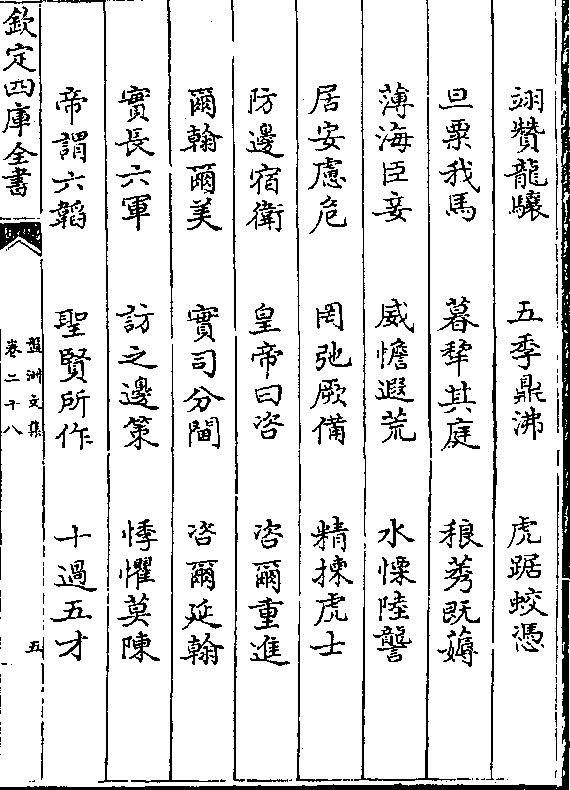 翊贊龍驤 五季鼎沸 虎踞蛟憑
旦粟我馬 暮犂其庭 稂莠既薅
薄海臣妾 威憺遐荒 水慄陸讋
居安慮危 罔弛厥備 精揀虎士
防邊宿衛 皇帝曰咨 咨爾重進
爾翰爾美 實司分閫 咨爾延翰
實長六軍 訪之邊策 悸懼莫陳
帝謂六韜 聖賢所作 十過五才
欽定四庫全書
盤洲文集
卷二十八
五